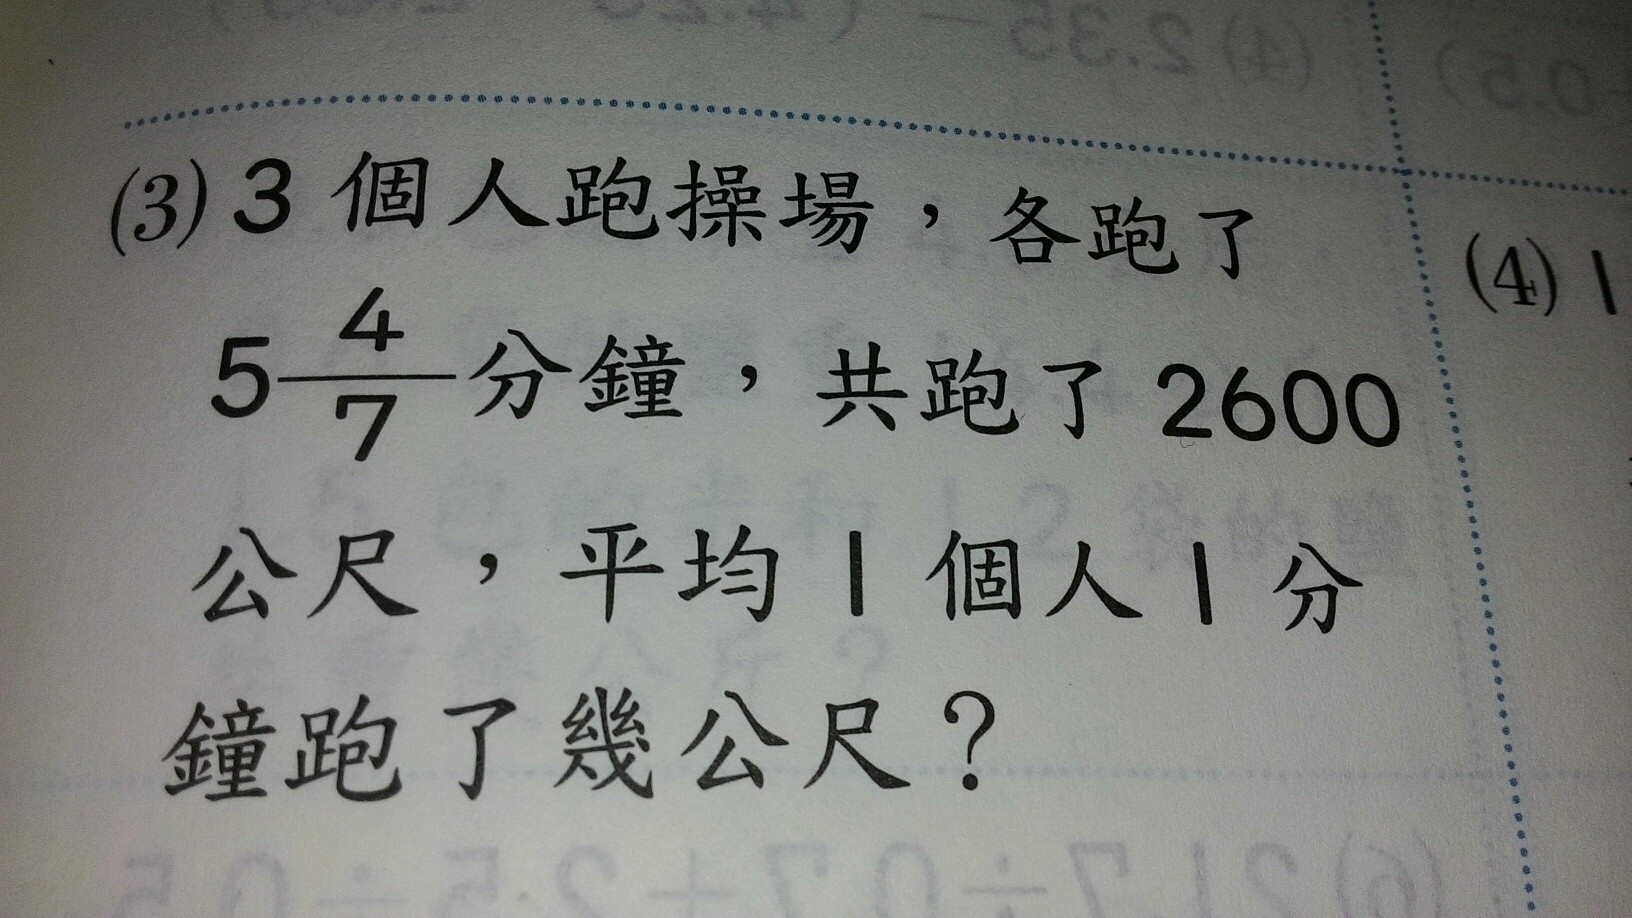 (3) 3 個人跑操場，各跑了
5 4/7 分鐘，共跑了 2600
公尺，平均 1 個人 1 分
鐘跑了幾公尺？
(4) 1